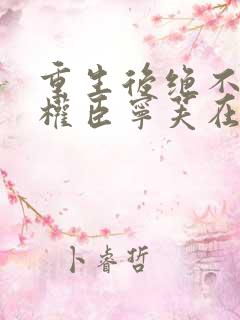 重生後绝不
權臣寧芙在
卜睿哲